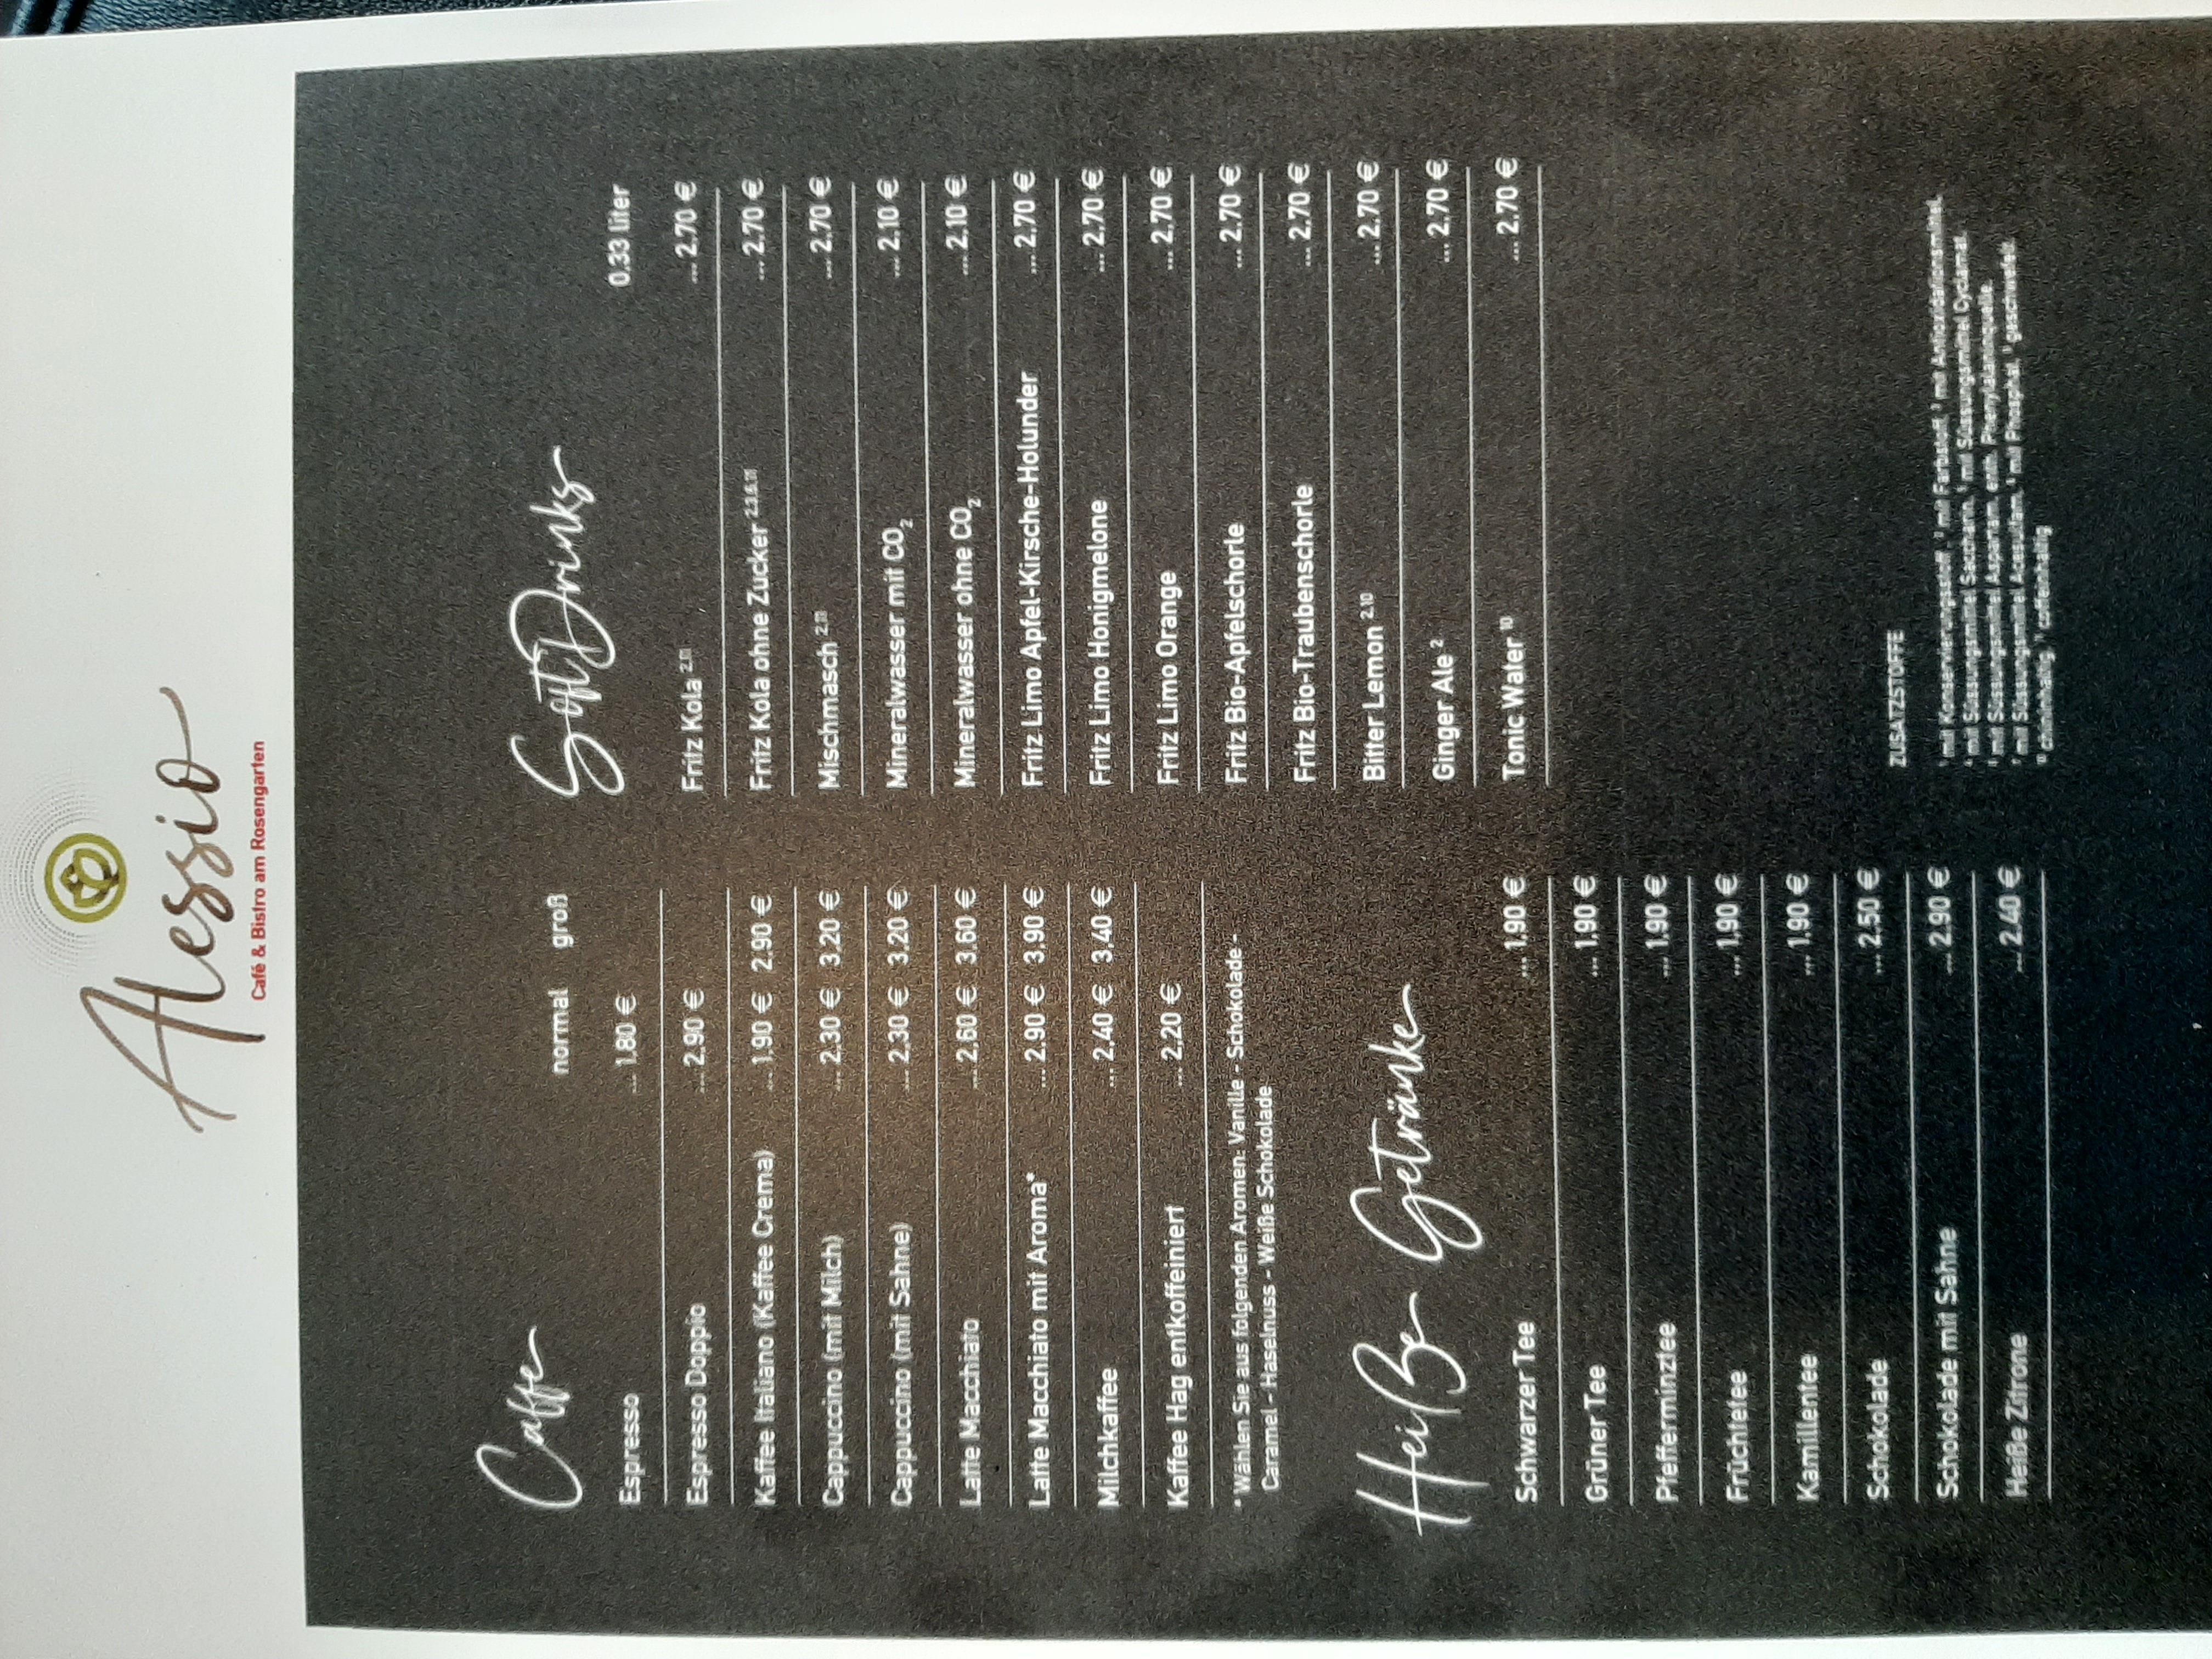 Alessio
Café & Bistro am Rosengarten
Caffe
normal groß
Espresso ... 1.80 €
Espresso Doppio ... 2.90 €
Kaffee Italiano (Kaffee Crema) ... 1.90 € 2.90 €
Cappuccino (mit Milch) ... 2.30 € 3.20 €
Cappuccino (mit Sahne) ... 2.30 € 3.20 €
Latte Macchiato ... 2.60 € 3.60 €
Latte Macchiato mit Aroma* ... 2.90 € 3.90 €
Milchkaffee ... 2.40 € 3.40 €
Kaffee Hag entkoffeiniert ... 2.20 €
* Wählen Sie aus folgenden Aromen: Vanille - Schokolade -
Caramel - Haselnuss - Weiße Schokolade
Heiße Getränke
Schwarzer Tee ... 1.90 €
Grüner Tee ... 1.90 €
Pfefferminztee ... 1.90 €
Früchtetee ... 1.90 €
Kamillentee ... 1.90 €
Schokolade ... 2.50 €
Schokolade mit Sahne ... 2.90 €
Heiße Zitrone ... 2.40 €
Soft Drinks
0.33 liter
Fritz Kola 2.11 ... 2.70 €
Fritz Kola ohne Zucker ... 2.70 €
Mischmasch 2.11 ... 2.70 €
Mineralwasser mit CO2 ... 2.10 €
Mineralwasser ohne CO2 ... 2.10 €
Fritz Limo Apfel-Kirsche-Holunder ... 2.70 €
Fritz Limo Honigmelone ... 2.70 €
Fritz Limo Orange ... 2.70 €
Fritz Bio-Apfelschorle ... 2.70 €
Fritz Bio-Traubenschorle ... 2.70 €
Bitter Lemon 2.10 ... 2.70 €
Ginger Ale 2 ... 2.70 €
Tonic Water 10 ... 2.70 €
ZUSATZSTOFFE
mit Konservierungsstoff, mit Farbstoff, mit Antioxidationsmittel,
mit Süssungsmittel Saccharin, mit Süssungsmittel Cyclamat,
mit Süssungsmittel Aspartam, enth. Phenylalaninquelle,
mit Süssungsmittel Acesulfam, mit Phosphat, geschwefelt,
chininhaltig, coffeinhaltig